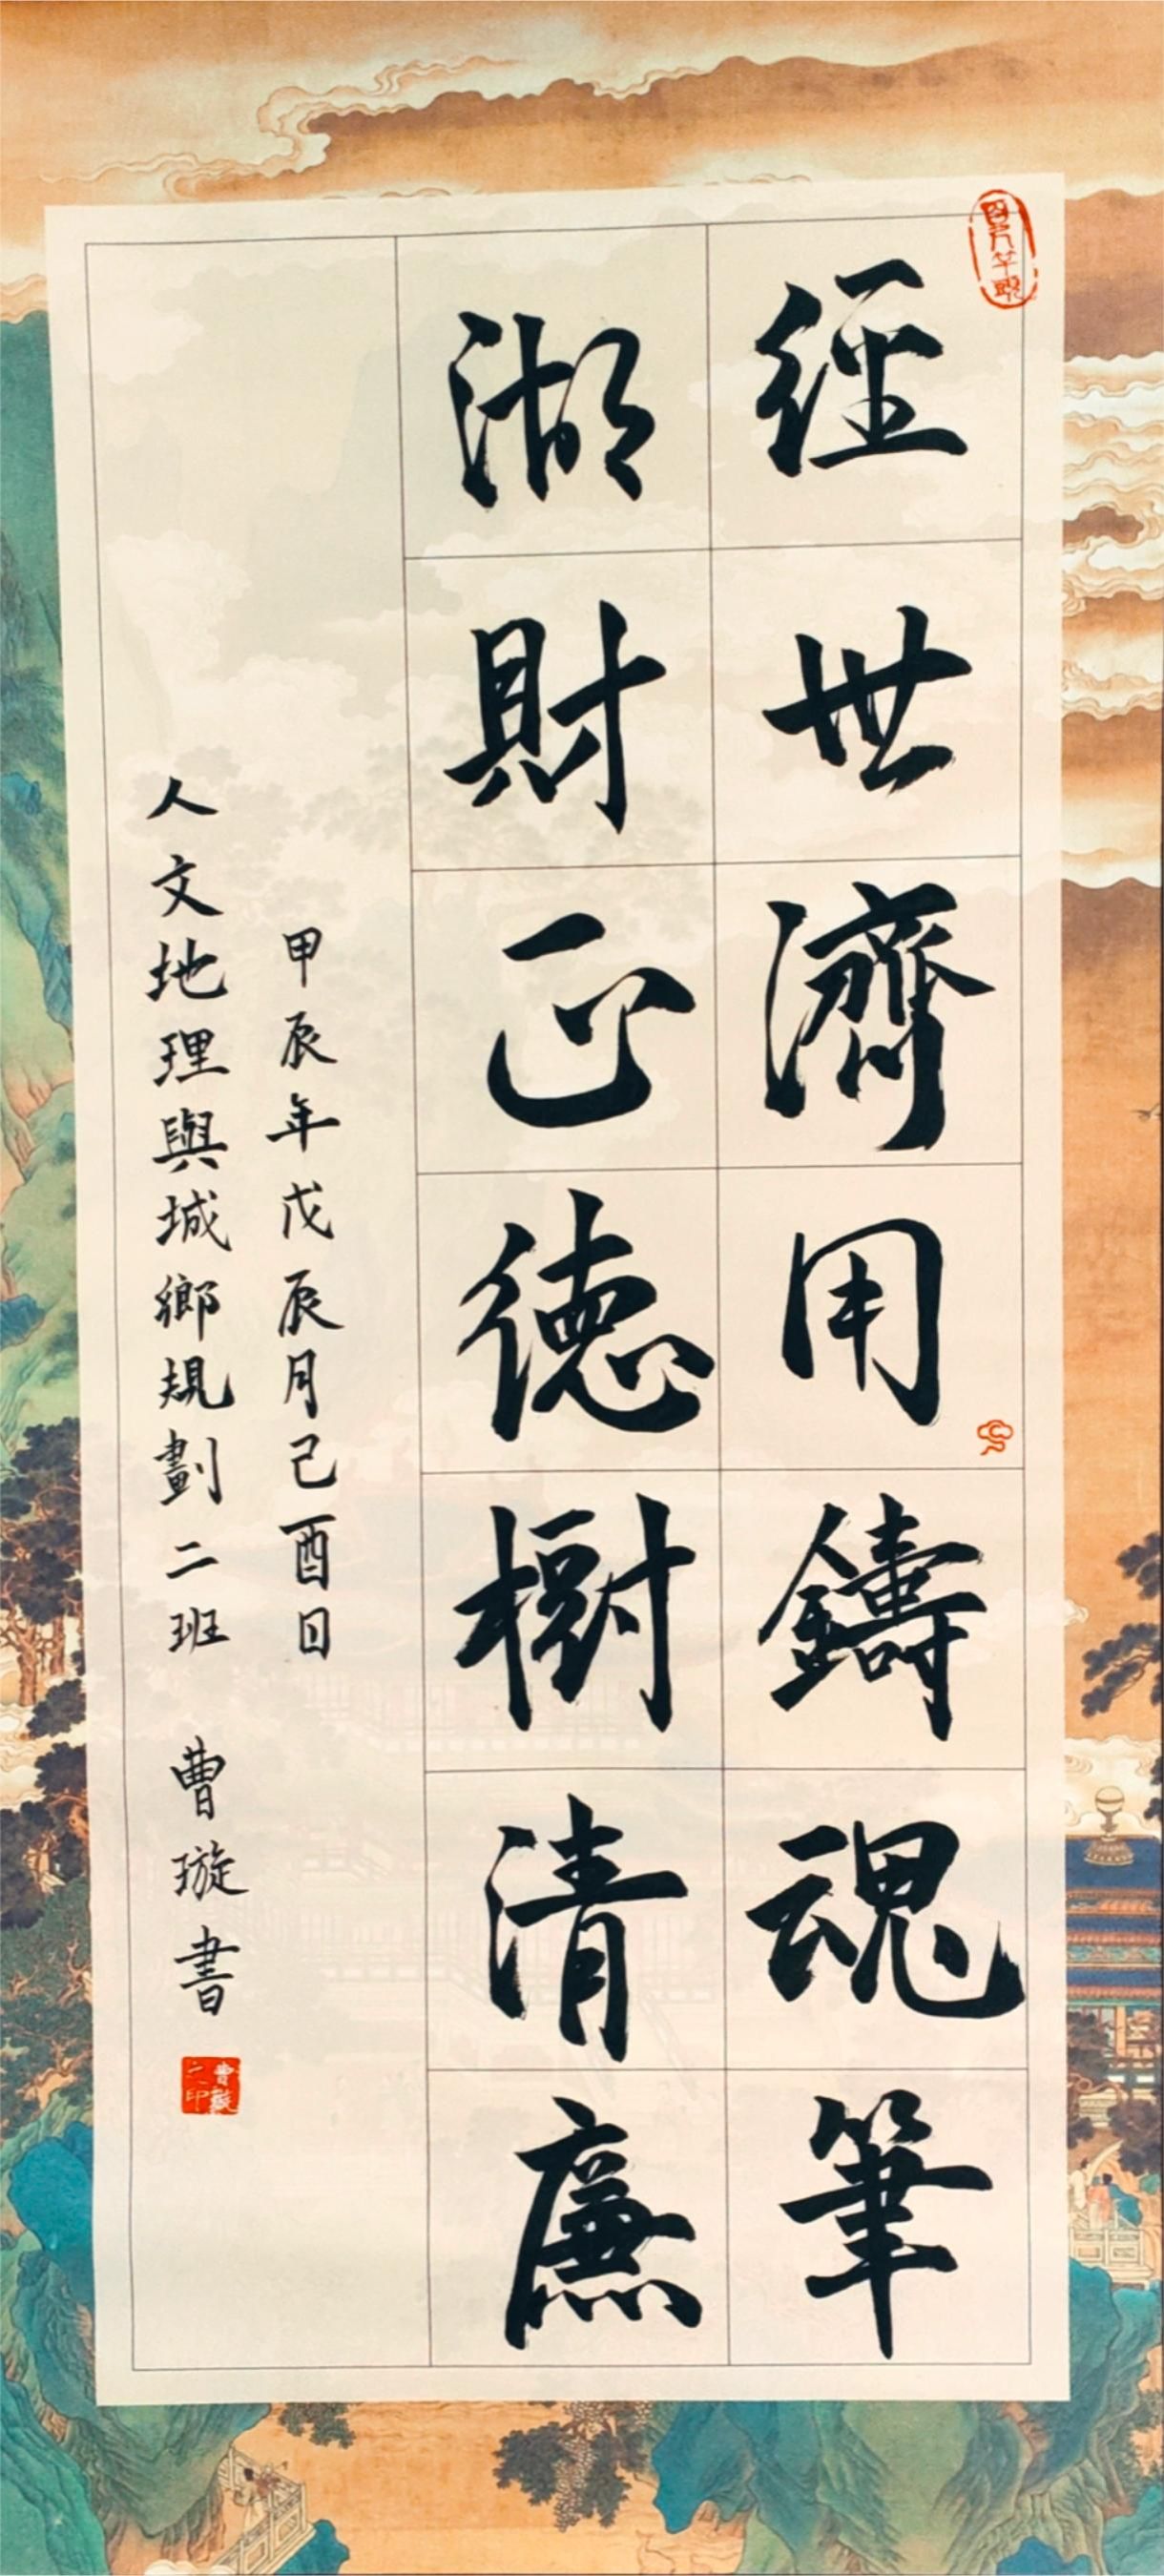 經世濟用鑄魂筆
湖財正德樹清廉
甲辰年戊辰月己酉日
人文地理與城鄉規劃二班 曹璇書